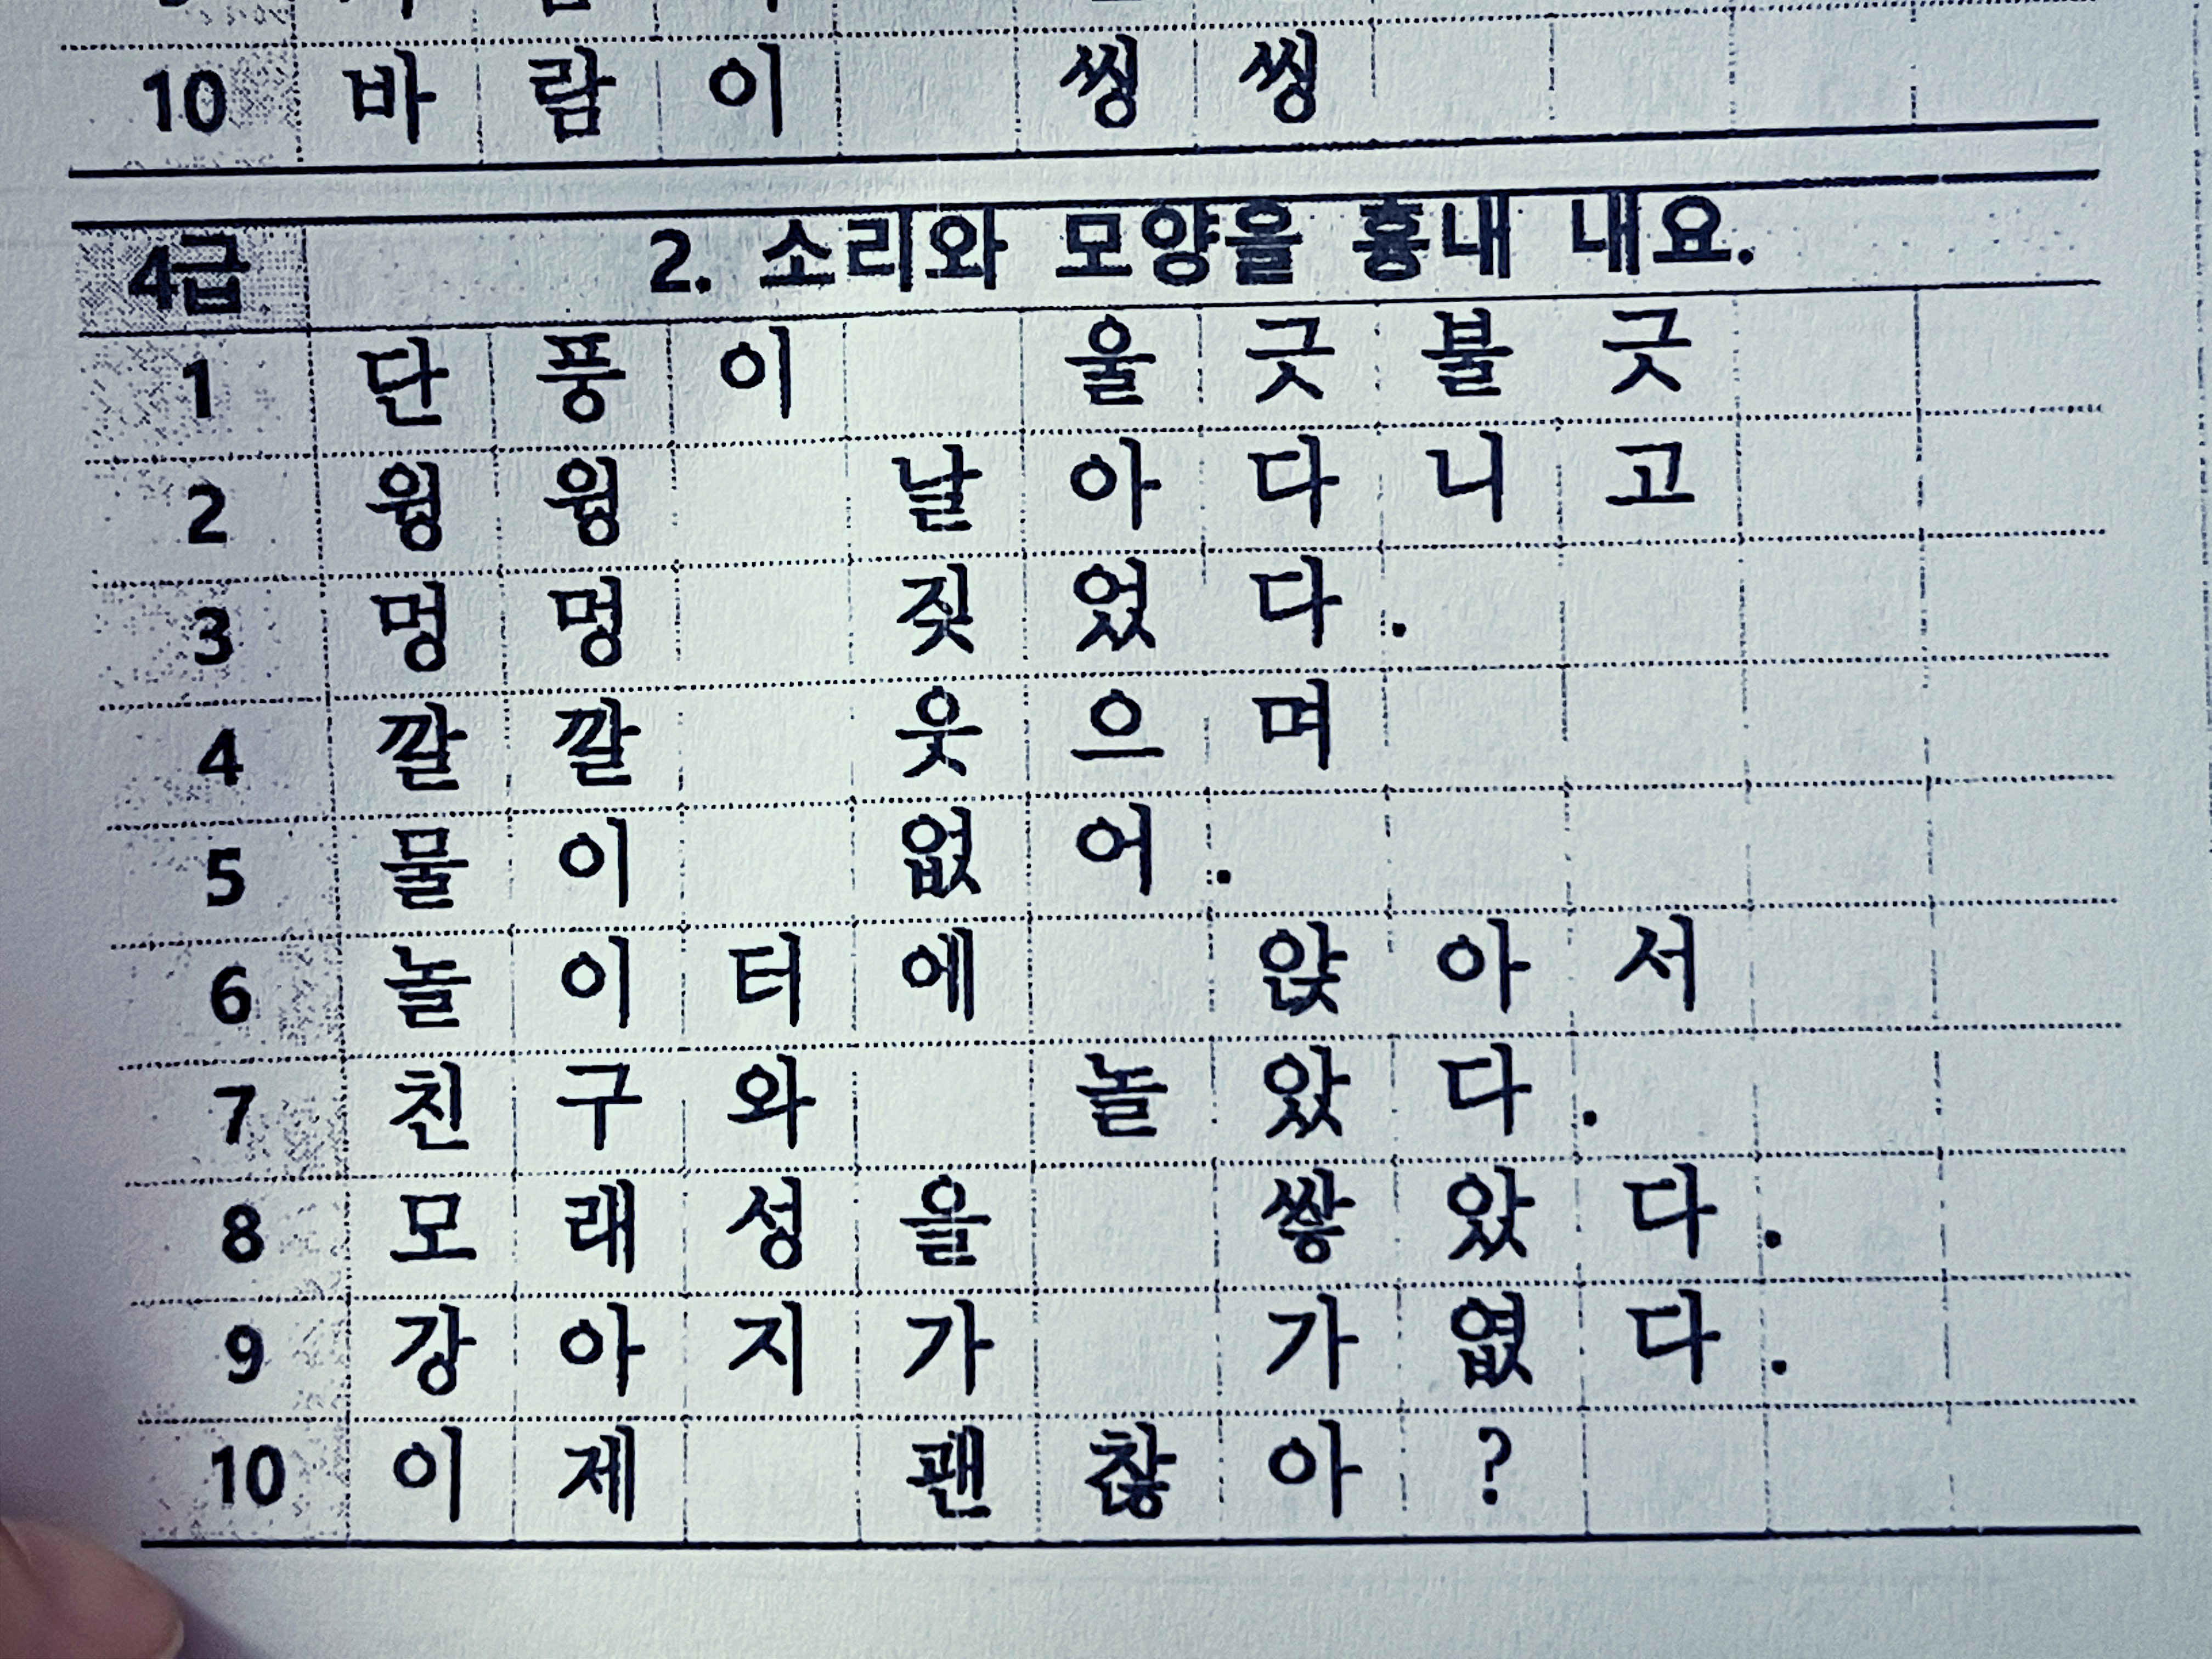 10 바람이 씽씽
4급 2. 소리와 모양을 흉내 내요.
1 단풍이 울긋불긋
2 윙윙 날아다니고
3 멍멍 짖었다.
4 깔깔 웃으며
5 물이 없어.
6 놀이터에 앉아서
7 친구와 놀았다.
8 모래성을 쌓았다.
9 강아지가 가엾다.
10 이제 괜찮아?